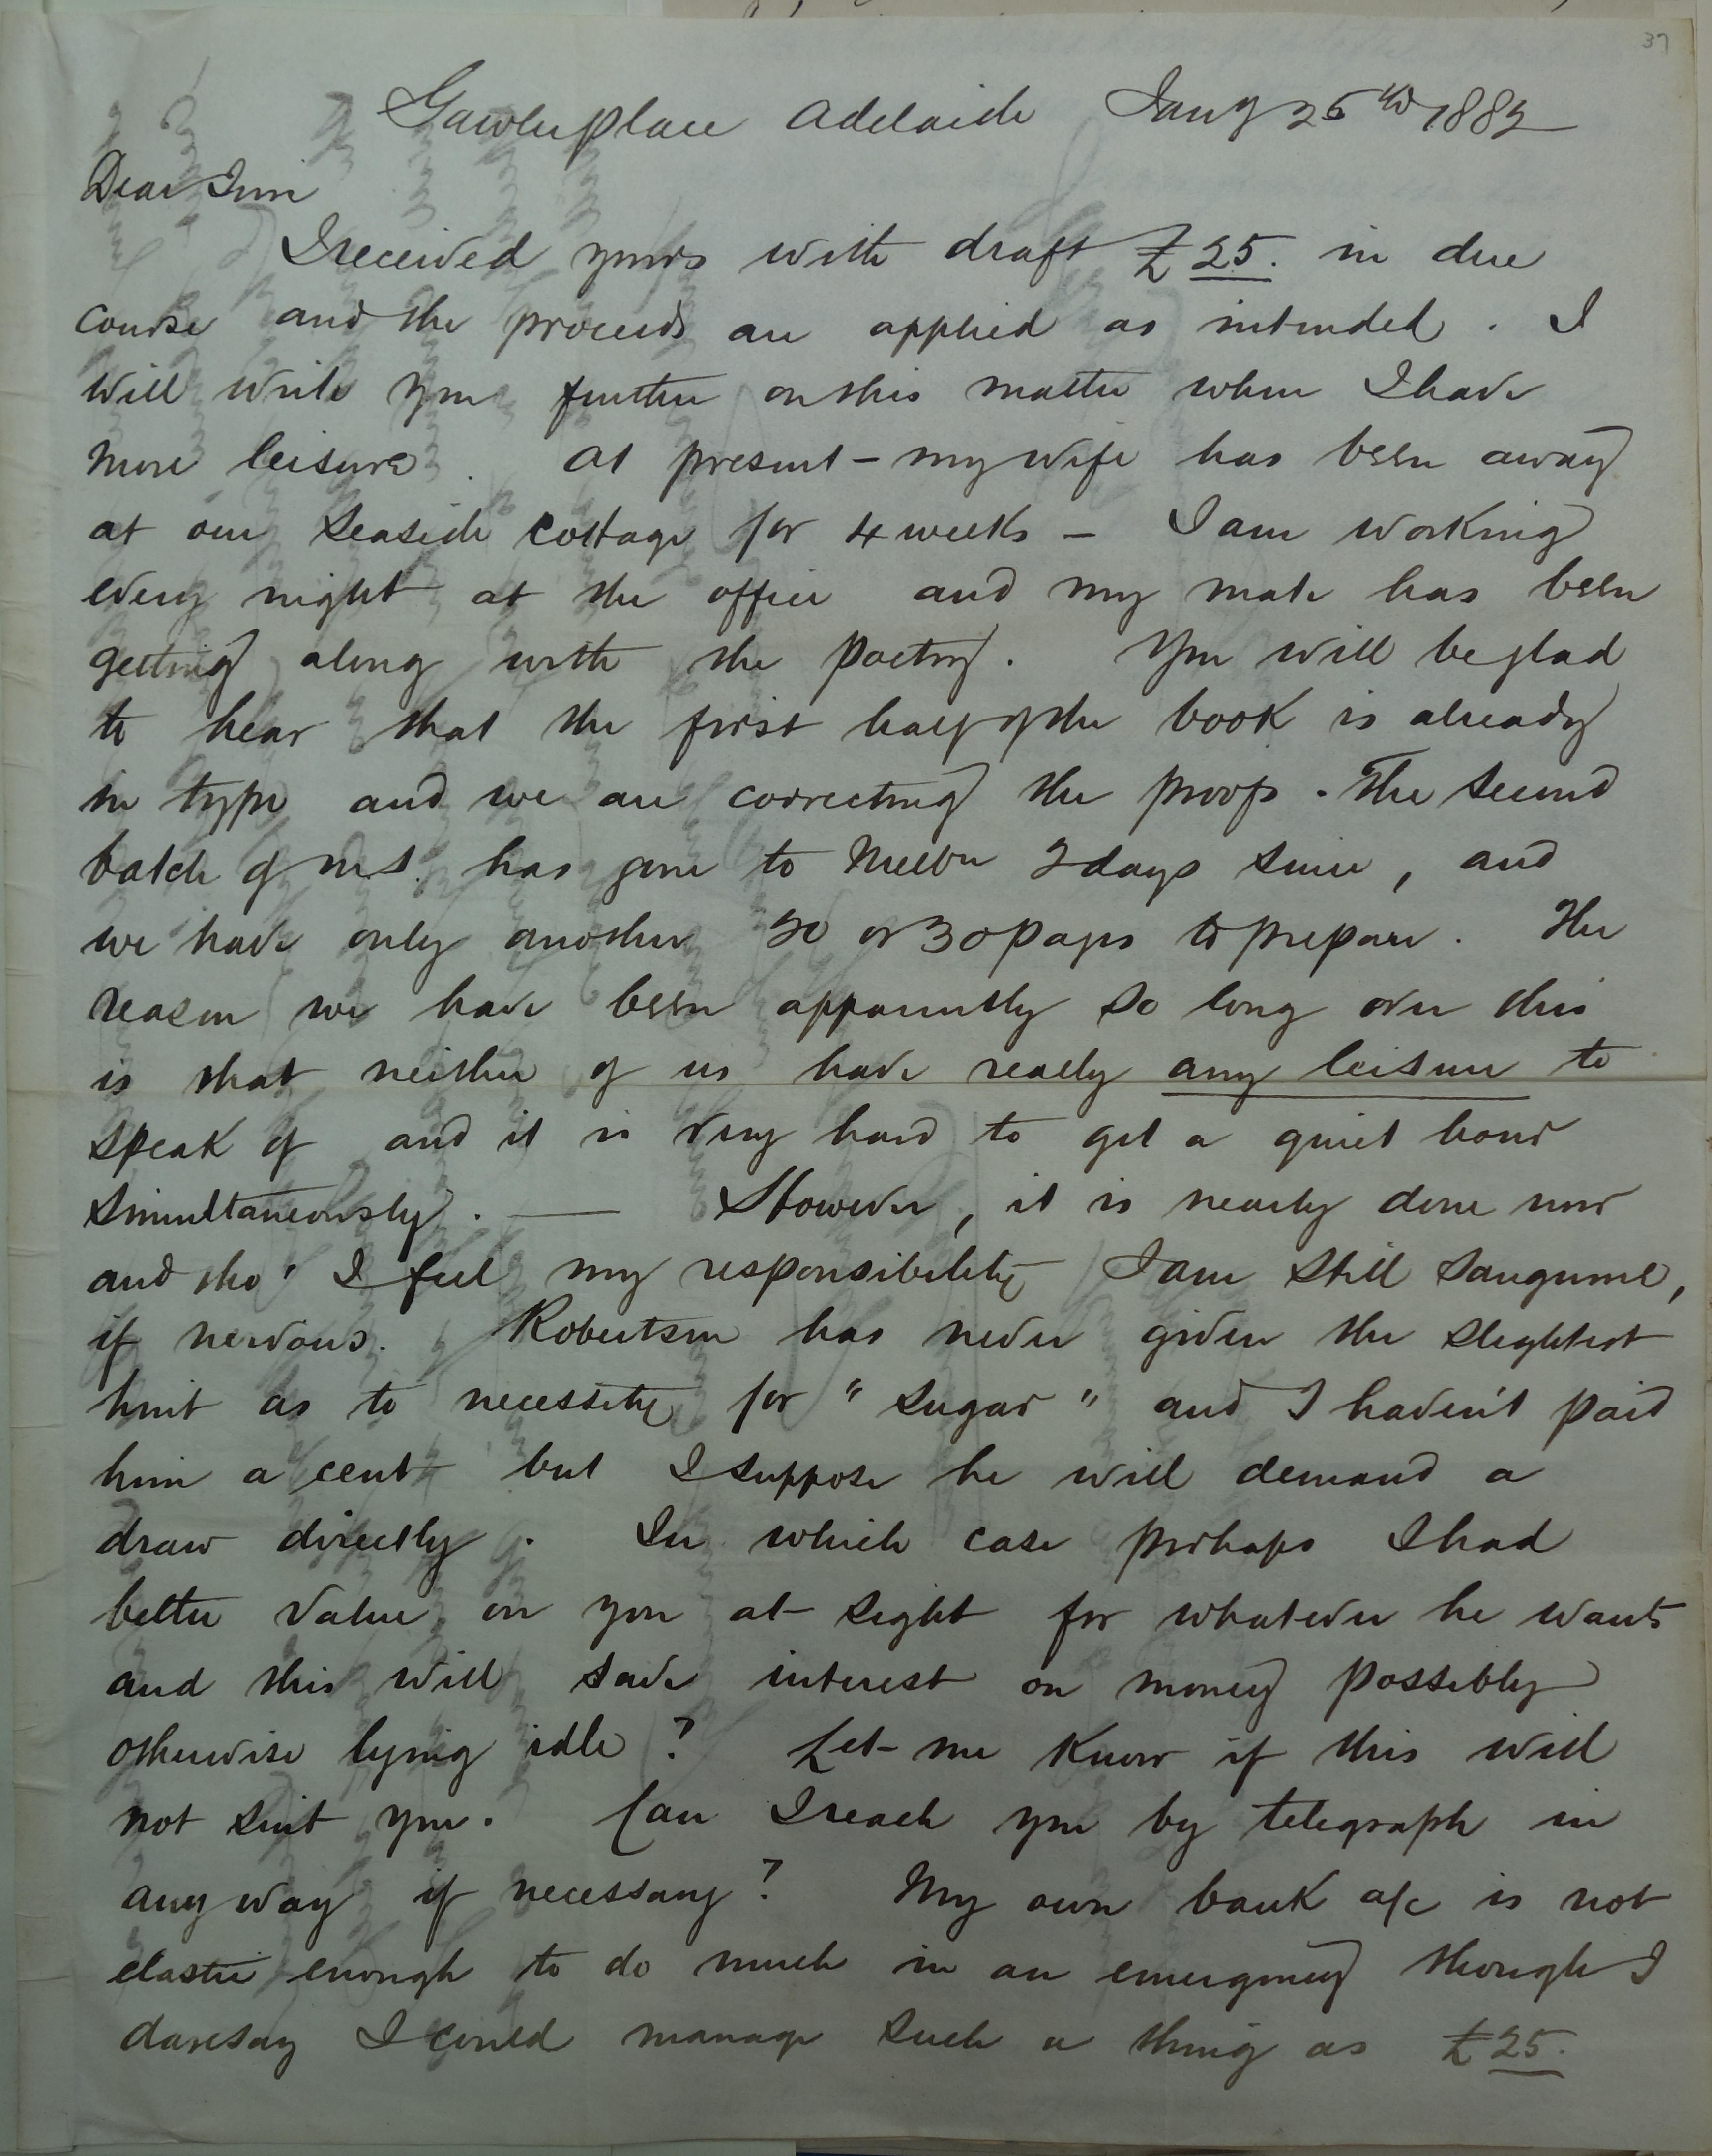 37
Gawler place Adelaide Jany 26th 1882
Dear Jim
I received yours with draft £25. in due
course and the proceeds are applied as intended. I
will write you further on this matter when I have
more leisure. At present – my wife has been away
at our seaside cottage for 4 weeks – I am working
every night at the office and my mate has been
getting along with the poetry. You will be glad
to hear that the first half of the book is already
in type and we are correcting the proofs. The second
batch of m.s. has gone to Melbn 2 days since, and
we have only another 20 or 30 pages to prepare. The
reason we have been apparently so long over this
is that neither of us have really any leisure to
speak of and it is very hard to get a quiet hour
simultaneously. — However, it is nearly done now
and tho' I feel my responsibility I am still sanguine,
if nervous. Robertson has never given the slightest
hint as to necessity for "sugar" and I haven't paid
him a cent but I suppose he will demand a
draw directly. In which case perhaps I had
better value on you at sight for whatever he wants
and this will save interest on money possibly
otherwise lying idle? Let me know if this will
not suit you. Can I reach you by telegraph in
any way if necessary? My own bank a/c is not
elastic enough to do much in an emergency though I
daresay I could manage such a thing as £25.